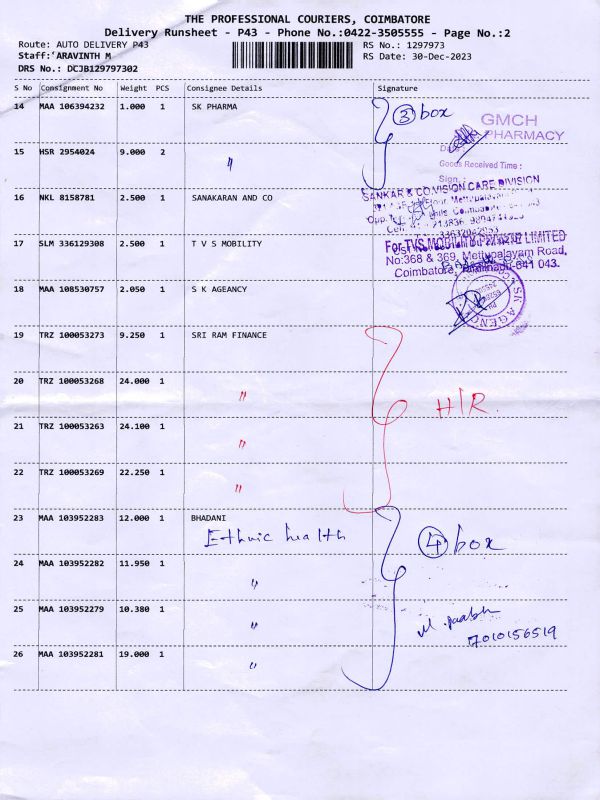 THE PROFESSIONAL COURIERS, COIMBATORE
Delivery Runsheet - P43 - Phone No.:0422-3505555 - Page No.:2
Route: AUTO DELIVERY P43
RS No.: 1297973
Staff: ARAVINTH M
RS Date: 30-Dec-2023
DRS No.: DCJB129797302
S No Consignment No Weight PCS Consignee Details Signature
14 MAA 106394232 1.000 1 SK PHARMA
3 box
GMCH
PHARMACY
15 HSR 2954024 9.000 2 "
Goods Received Time :
Sign. :
16 NKL 8158781 2.500 1 SANAKARAN AND CO
SANKAR & CO.VISION CARE DIVISION
17 SLM 336129308 2.500 1 T V S MOBILITY
For TVS MOBILITY LIMITED
No:368 & 369, Mettupalayam Road,
Coimbatore, 641 043.
18 MAA 108530757 2.050 1 S K AGEANCY
SK AGENC
19 TRZ 100053273 9.250 1 SRI RAM FINANCE
20 TRZ 100053268 24.000 1 "
H/R.
21 TRZ 100053263 24.100 1 "
22 TRZ 100053269 22.250 1 "
23 MAA 103952283 12.000 1 BHADANI
Ethnic health
4 box
24 MAA 103952282 11.950 1 "
25 MAA 103952279 10.380 1 "
7010156519
26 MAA 103952281 19.000 1 "